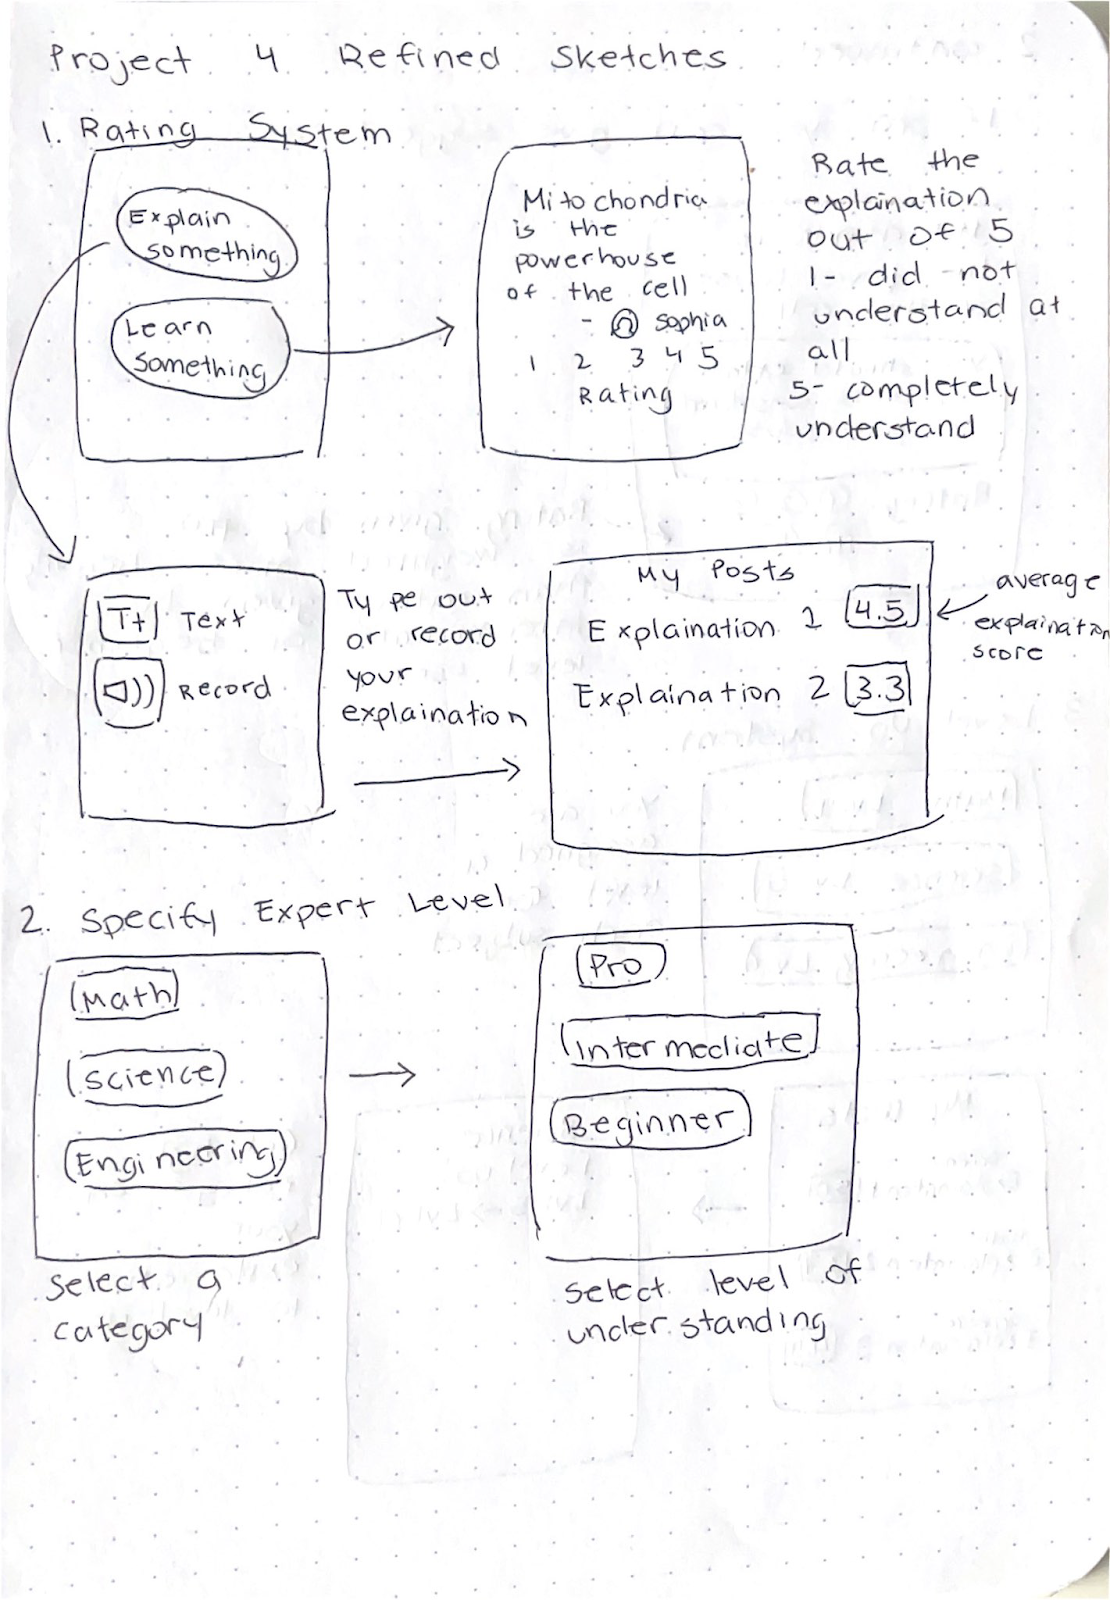 Project 4 Refined Sketches
1. Rating System
Explain
something
Learn
something
Mitochondria
is the
powerhouse
of the cell
- sophia
1 2 3 4 5
Rating
Rate the
explaination
out of 5
1- did not
understand at
all
5- completely
understand
T+ Text
Record
Type out
or record
your
explaination
My Posts
Explaination 1 4.5
Explaination 2 3.3
average
explaination
score
2. Specify Expert Level
Math
Science
Engineering
Select a
category
Pro
Intermediate
Beginner
Select level of
understanding